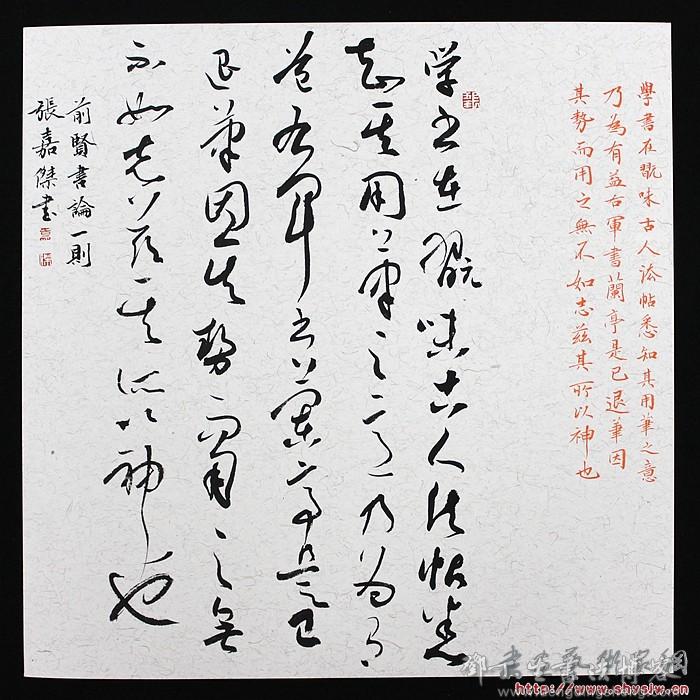 學書在翫味古人法帖悉知其用筆之意
乃為有益右軍書蘭亭是已退筆因
其勢而用之無不如志茲其所以神也
学书在翫味古人法帖悉
知其用筆之意乃为有
益右军书蘭亭是已
退筆因其勢而用之無
不如志茲其所以神也
前賢書論一則
張嘉傑書
http://www.shyslw.cn